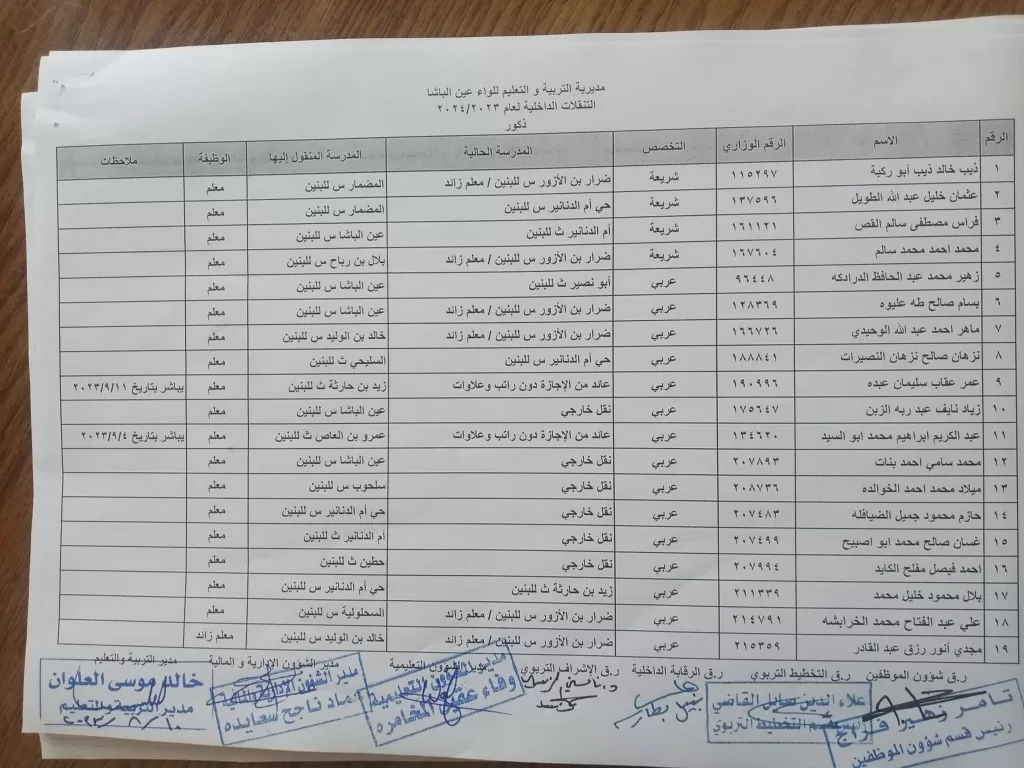 مديرية التربية و التعليم للواء عين الباشا
التنقلات الداخلية لعام ٢٠٢٤/٢٠٢٣
ذكور
الرقم الاسم الرقم الوزاري التخصص المدرسة الحالية المدرسة المنقول إليها الوظيفة ملاحظات
١ ذيب خالد ذيب أبو ركبة ١١٥٢٩٧ شريعة ضرار بن الأزور س للبنين / معلم زائد المضمار س للبنين معلم
٢ عثمان خليل عبد الله الطويل ١٣٧٥٩٦ شريعة حي أم الدنانير س للبنين المضمار س للبنين معلم
٣ فراس مصطفى سالم القص ١٦١١٢١ شريعة أم الدنانير ث للبنين عين الباشا س للبنين معلم
٤ محمد احمد محمد سالم ١٦٧٦٠٤ شريعة ضرار بن الأزور س للبنين / معلم زائد بلال بن رباح س للبنين معلم
٥ زهير محمد عبد الحافظ الدرادكه ٩٦٤٤٨ عربي أبو نصير ث للبنين عين الباشا س للبنين معلم
٦ بسام صالح طه عليوه ١٢٨٣٦٩ عربي ضرار بن الأزور س للبنين / معلم زائد عين الباشا س للبنين معلم
٧ ماهر احمد عبد الله الوحيدي ١٦٦٧٢٦ عربي ضرار بن الأزور س للبنين / معلم زائد خالد بن الوليد س للبنين معلم
٨ نزهان صالح نزهان النصيرات ١٨٨٨٤١ عربي حي أم الدنانير س للبنين السليحي ث للبنين معلم
٩ عمر عقاب سليمان عبده ١٩٠٩٩٦ عربي عائد من الإجازة دون راتب وعلاوات زيد بن حارثة ث للبنين معلم يباشر بتاريخ ٢٠٢٣/٩/١١
١٠ زياد نايف عبد ربه الزبن ١٧٥٦٤٧ عربي نقل خارجي عين الباشا س للبنين معلم
١١ عبد الكريم ابراهيم محمد ابو السيد ١٣٤٦٢٠ عربي عائد من الإجازة دون راتب وعلاوات عمرو بن العاص ث للبنين معلم يباشر بتاريخ ٢٠٢٣/٩/٤
١٢ محمد سامي احمد بنات ٢٠٧٨٩٣ عربي نقل خارجي عين الباشا س للبنين معلم
١٣ ميلاد محمد احمد الخوالده ٢٠٨٧٣٦ عربي نقل خارجي سلحوب س للبنين معلم
١٤ حازم محمود جميل الضيافله ٢٠٧٤٨٣ عربي نقل خارجي حي أم الدنانير س للبنين معلم
١٥ غسان صالح محمد ابو اصبيح ٢٠٧٤٩٩ عربي نقل خارجي أم الدنانير ث للبنين معلم
١٦ احمد فيصل مفلح الكايد ٢٠٧٩٩٤ عربي نقل خارجي حطين ث للبنين معلم
١٧ بلال محمود خليل محمد ٢١١٣٣٩ عربي زيد بن حارثة ث للبنين حي أم الدنانير س للبنين معلم
١٨ علي عبد الفتاح محمد الخرابشه ٢١٤٧٩١ عربي ضرار بن الأزور س للبنين / معلم زائد السحلولية س للبنين معلم
١٩ مجدي أنور رزق عبد القادر ٢١٥٣٥٩ عربي ضرار بن الأزور س للبنين / معلم زائد خالد بن الوليد س للبنين معلم زائد
ر.ق شؤون الموظفين ر.ق التخطيط التربوي ر.ق الرقابة الداخلية ر.ق الإشراف التربوي الشؤون التعليمية مدير الشؤون الإدارية و المالية مدير التربية والتعليم
تامر زهير فراج
رئيس قسم شؤون الموظفين
علاء الدين القاضي
التخطيط التربوي
مدير الشؤون التعليمية
وفاء المغامره
مدير الشؤون الإدارية والمالية
عماد ناجح سعايده
خالد موسى العلوان
مدير التربية والتعليم